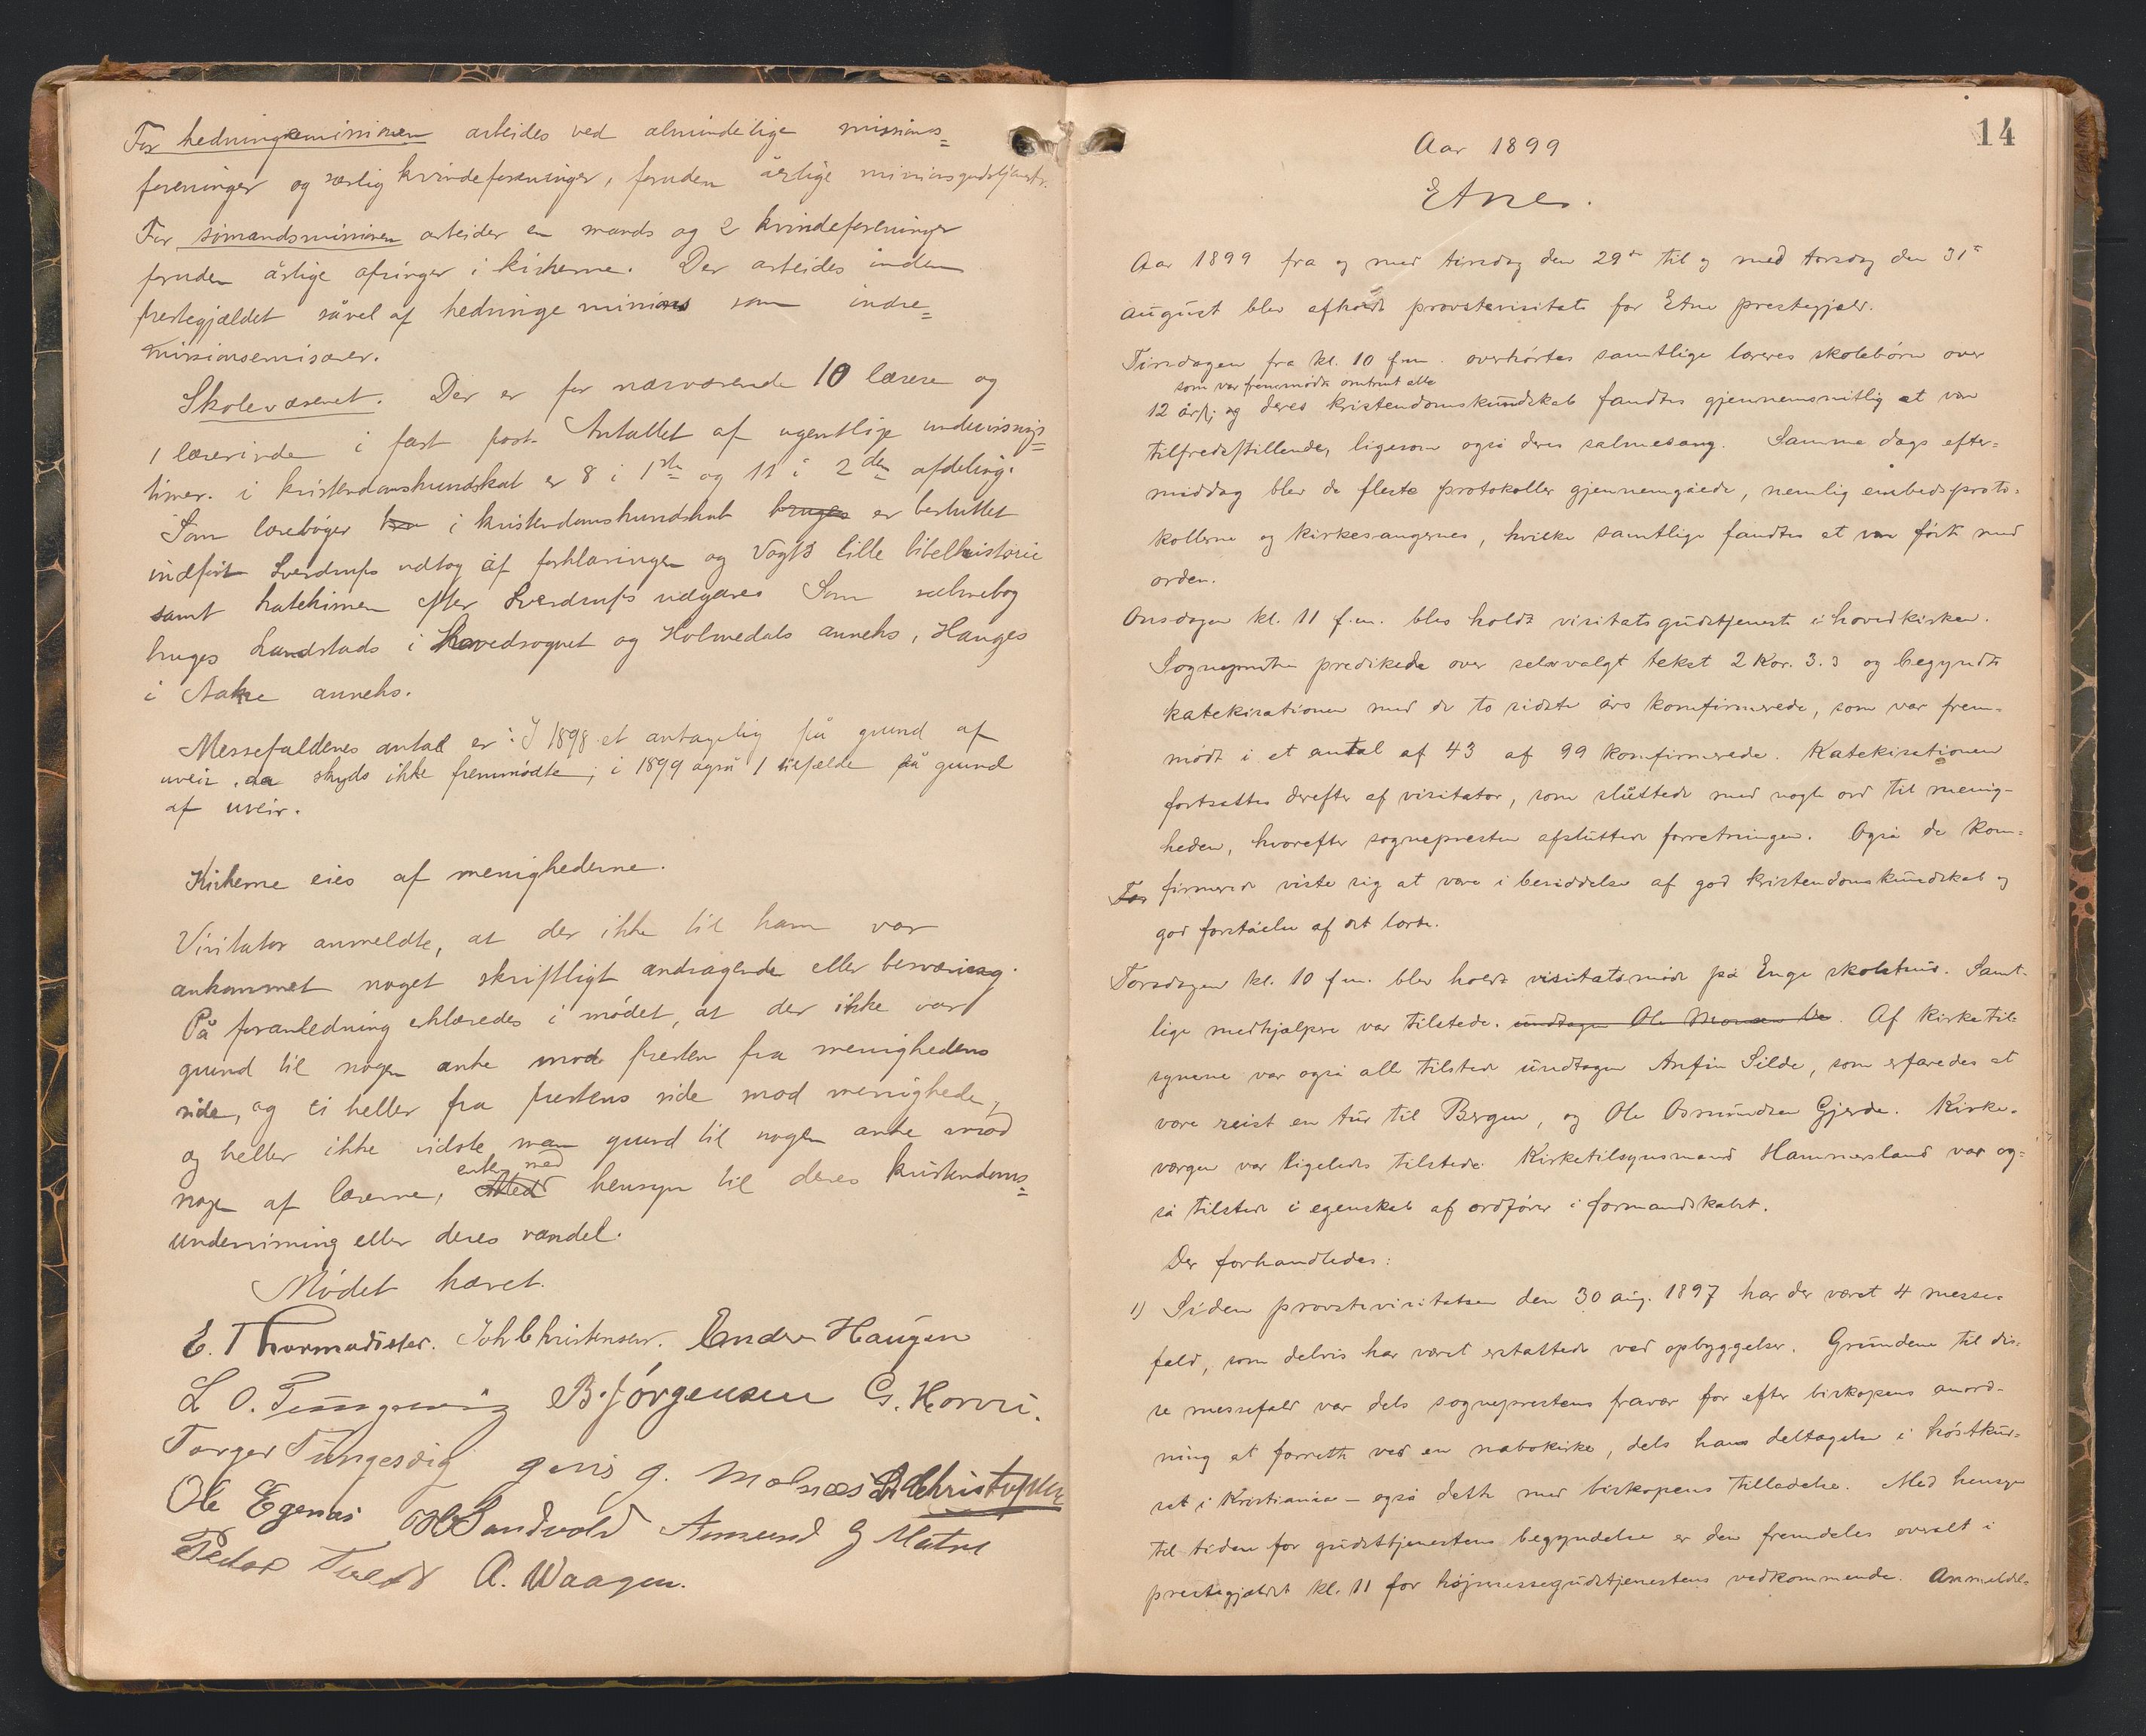 For hedningemissionen arbeides ved almindelige missions=
foreninger og særlig kvindeforeninger, foruden årlige missionsgudstjenester.
For sømandsmissionen arbeider en mands og 2 kvindeforeninger
foruden årlige ofringer i kirkerne. Der arbeides inden
prestegjældet såvel af hedningemissions som indre=
missionsemisærer.
Skolevæsenet. Der er for nærværende 10 lærere og
1 lærerinde i fast post. Antallet af ugentlige undervisnings=
timer i kristendomskundskab er 8 i 1ste og 11 i 2den afdeling.
Som lærebøger i kristendomskundskab bruges er besluttet
indført Sverdrups udtog af forklaringen og Vogts lille bibelhistorie
samt katekismen efter Sverdrups udgaves Som salmebog
bruges Landstads i hovedsognet og Holmedals anneks, Hauges
i Aakre anneks.
Messefaldenes antal er: I 1898 et antagelig på grund af
uveir, da skyds ikke fremmødte; i 1899 også 1 tilfælde på grund
af uveir.
Kirkerne eies af menighederne.
Visitator anmeldte, at der ikke til ham var
ankommet noget skriftligt andragende eller besværing.
På foranledning erklæredes i mødet, at der ikke var
grund til nogen anke mod presten fra menighedens
side, og ei heller fra prestens side mod menigheden,
og heller ikke vidste man grund til nogen anke mod
enten med
nogen af lærerne, Med hensyn til deres kristendoms=
undervisning eller deres vandel.
Mødet hævet.
E. Thormodsæter. Joh Christensen. Ender Haugen
L O. B. Jørgensen G. Horvei.
Torger Tungesvig gøris g. Molnæs Christophersen
Ole Egenæs Sandvold Aamund G Matre
Peder Tveit A. Waagen.
14
Aar 1899
Etne.
Aar 1899 fra og med tirsdag den 29de til og med torsdag den 31te
august blev afholdt provstevisitats for Etne prestegjæld.
Tirsdagen fra kl. 10 f.m. overhørtes samtlige læreres skolebørn over
som var fremmødt omtrent alle
12 år; og deres kristendomskundskab fandtes gjennemsnitlig at være
tilfredsstillende, ligesom også deres salmesang. Samme dags efter=
middag blev de fleste protokoller gjennemgåede, nemlig embedsproto=
kollerne og kirkesangernes, hvilke samtlige fandtes at være ført med
orden.
Onsdagen kl. 11 f.m. blev holdt visitatsgudstjeneste i hovedkirken.
Sognepresten prædikede over selvvalgt tekst 2 Kor. 3.3 og begyndte
katekisationen med de to sidste års konfirmerede, som var frem-
mødt i et antal af 43 af 99 konfirmerede. Katekisationen
fortsattes derefter af visitator, som sluttede med nogle ord til menig-
heden, hvorefter sognepresten afsluttede forretningen. Også de kon=
For firmerede viste sig at være i besiddelse af god kristendomskundskab og
god forståelse af det lærte.
Torsdagen kl. 10 f.m. blev holdt visitatsmøde på Enge skolehus. Samt-
lige medhjælpere var tilstede. undtagen Ole Monsen . Af kirketil
synene var også alle tilstede undtagen Anfin Silde, som erfaredes at
være reist en tur til Bergen, og Ole Osmundsen Gjerde. Kirke-
værgen var ligeledes tilstede. Kirketilsynsmand Hammersland var og=
så tilstede i egenskab af ordfører i formandskabet.
Der forhandledes:
1) Siden provstevisitatsen den 30 aug. 1897 har der været 4 messe-
fald, som delvis har været erstattede ved opbyggelser. Grundene til dis-
se messefald var dels sogneprestens fravær for efter biskopens anord-
ning at forrette ved en nabokirke, dels hans deltagelse i høstkur-
set i Kristiania – også dette med biskopens tilladelse. Med hensyn
til tiden for gudstjenestens begyndelse er den fremdeles overalt i
prestegjældet kl. 11 for højmessegudstjenestens vedkommende. Anmeldel-